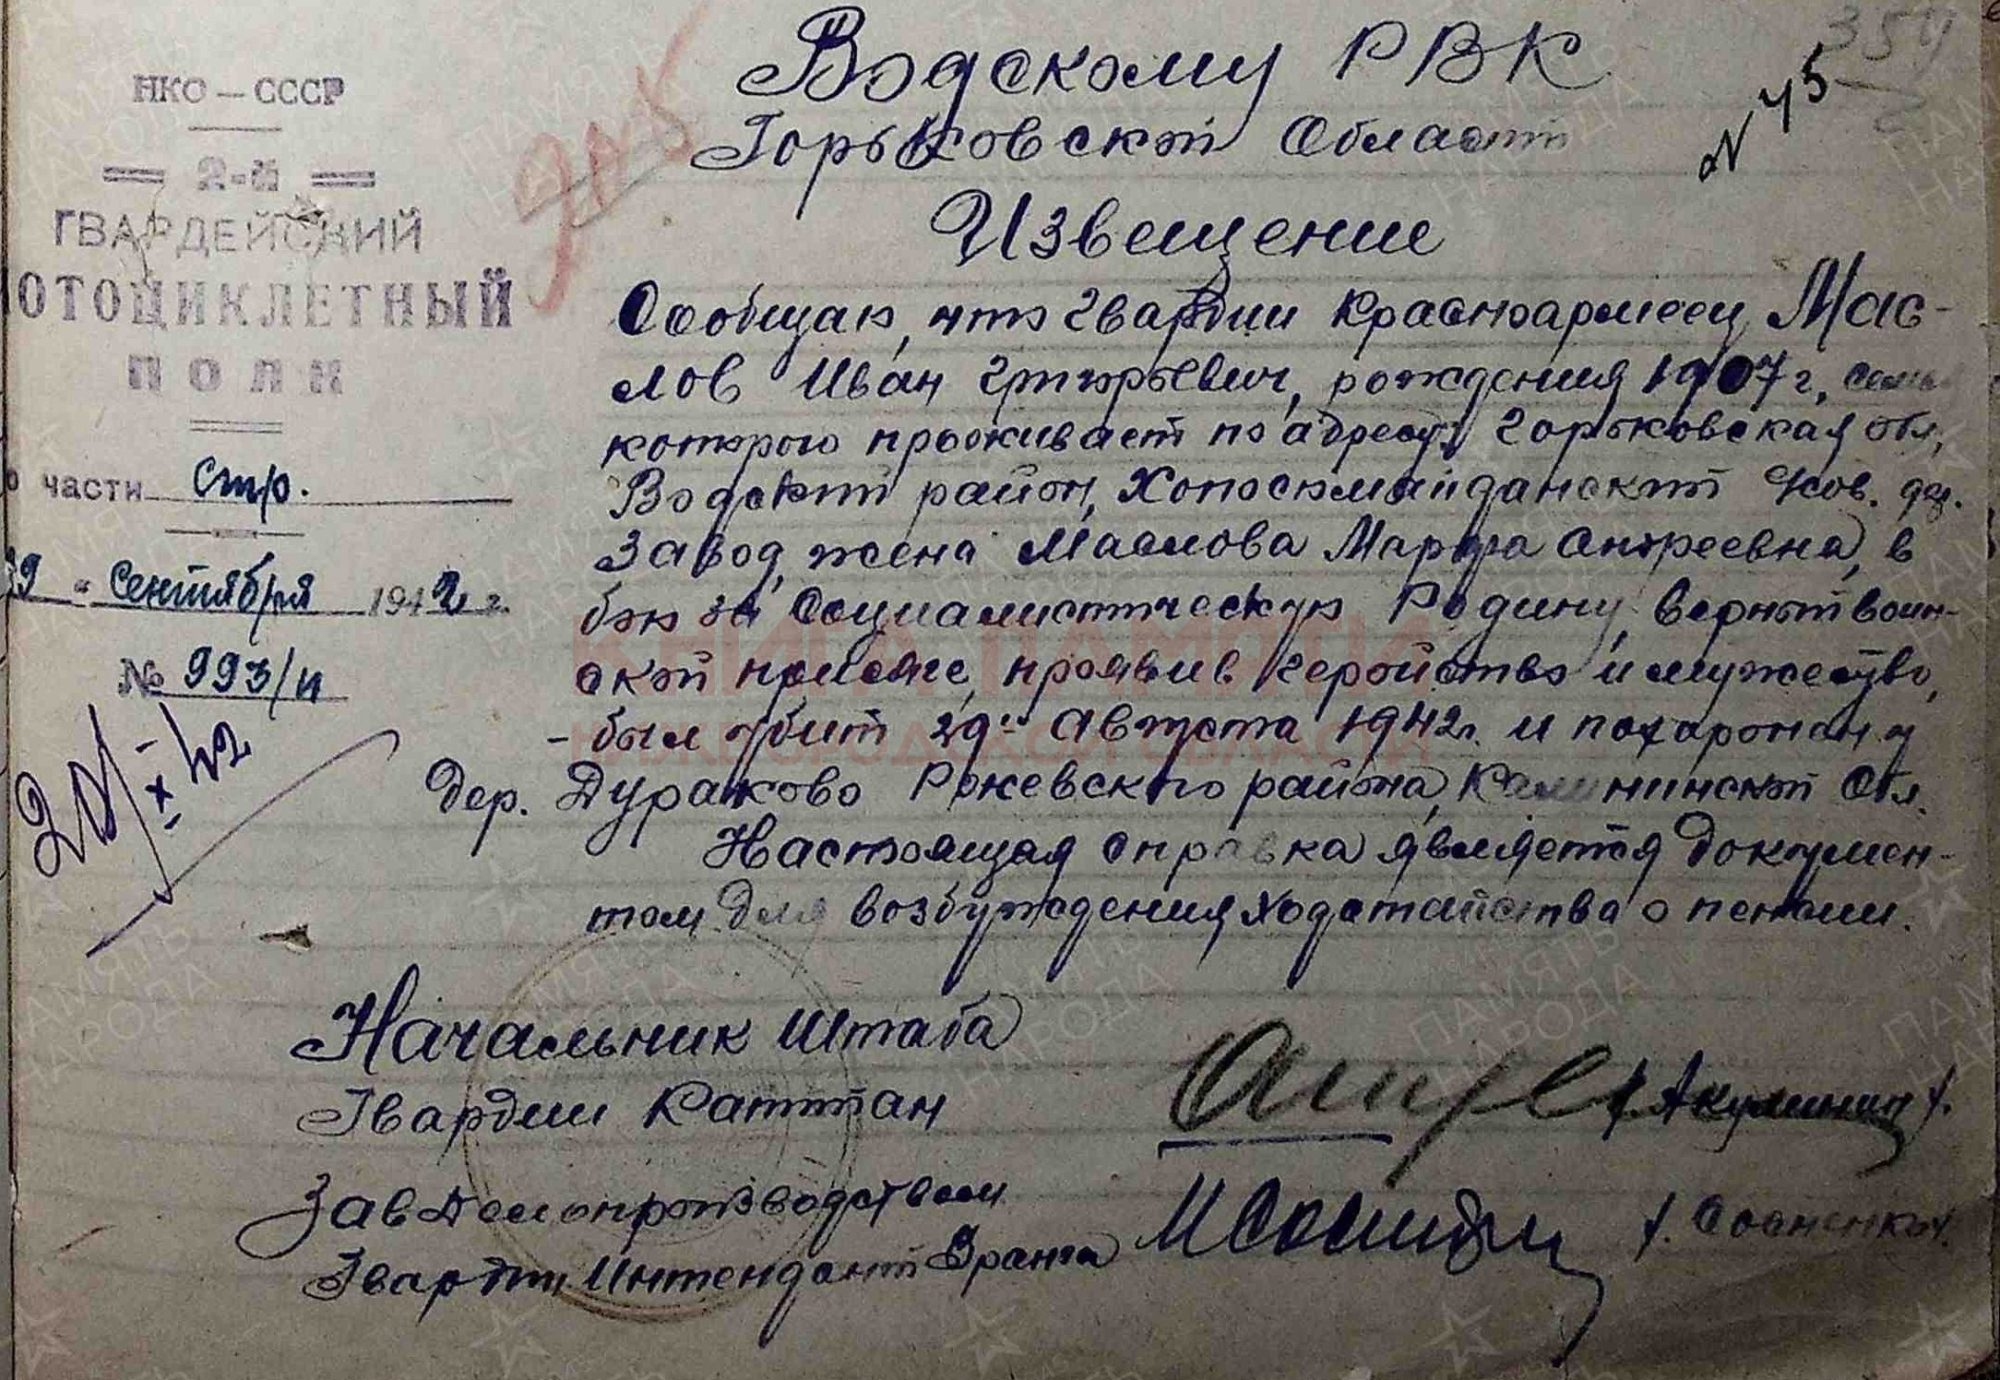 НКО – СССР
2-й
ГВАРДЕЙСКИЙ
ОТОЦИКЛЕТНЫЙ
ПОЛК
части стр.
сентября 1942 г.
№ 993/и
20/IX 42
354
№ 45
Водскому РВК
Горьковской Области
Извещение
Сообщаю, что гвардии Красноармеец Мас-
лов Иван Григорьевич, рождения 1907 г, семья
которого проживает по адресу: Горьковская обл,
Водский район, Холостомайданский сов. дер.
Завод, жена Маслова Марфа Андреевна, в
бою за Социалистическую Родину, верный воин-
ской присяге, проявив геройство и мужество,
– был убит 29го Августа 1942г. и похоронен у
дер. Дураково Ржевского района, Калининской Обл.
Настоящая справка является докумен-
том для возбуждения ходатайства о пенсии.
Начальник Штаба
Гвардии Капитан /. Акулинин /.
Зав Делопроизводством
Гвардии Интендант 3 ранга /. Сосненко /.
КНИГА ПАМЯТИ
НИЖЕГОРОДСКОЙ ОБЛАСТИ
ПАМЯТЬ НАРОДА